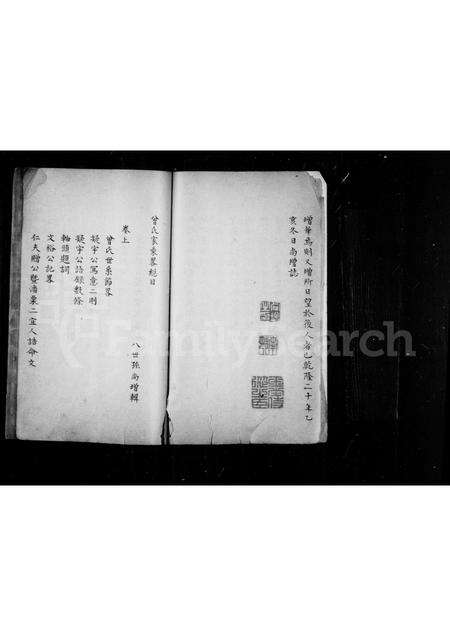 增華焉則又增所日望於後人者也乾隆二十年乙
亥冬日尚增誌
曾氏家乘畧總目
八世孫尚增輯
卷上
曾氏世系節畧
凝宇公寓意二則
凝宇公語錄數條
軸頭題詞
文裕公記畧
仁夫贈公暨潘粟二宜人誥命文
FamilySearch